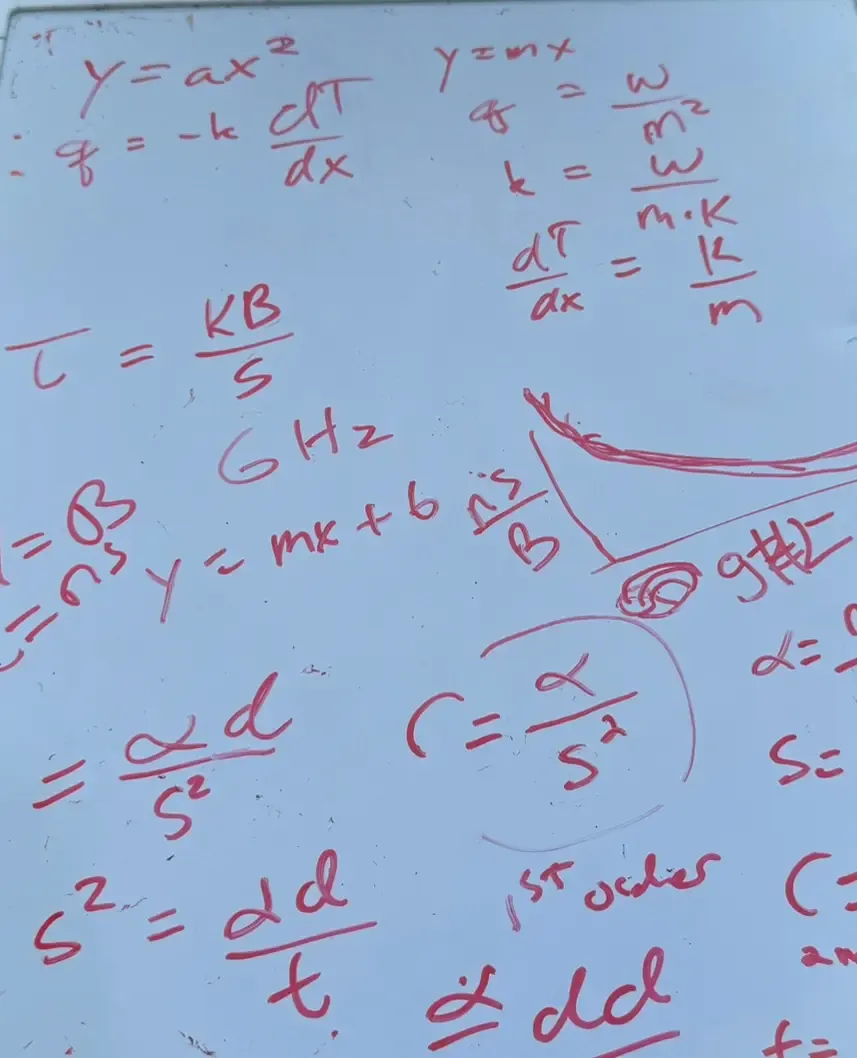 y = ax²
y = mx
q = -k dT/dx
q = W/m²
k = W/m·K
dT/dx = K/m
τ = KB/s
GHz
= B
= ns
y = mx + b
ns/B
= αd/s²
C = α/s²
α =
s =
s² = αd/t
1ST order
C =
α dd
t =